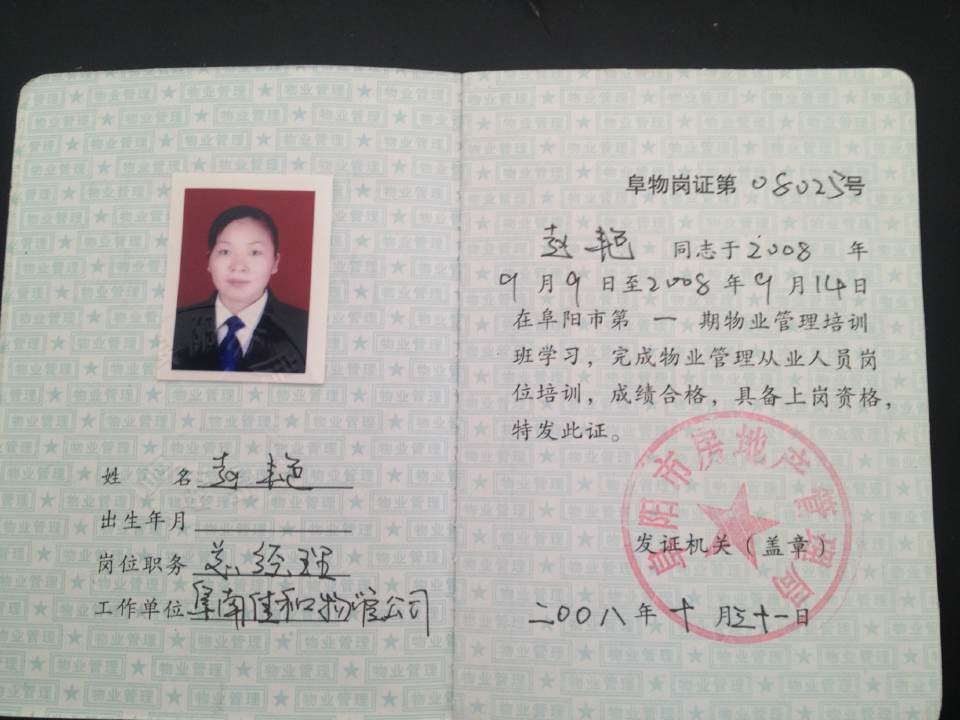 姓 名 赵艳
出生年月
岗位职务 总经理
工作单位 阜南佳和物管公司
阜物岗证第08025号
赵艳 同志于2008年
9月9日至2008年9月14日
在阜阳市第一期物业管理培训
班学习，完成物业管理从业人员岗
位培训，成绩合格，具备上岗资格，
特发此证。
阜阳市房地产管理局
发证机关（盖章）
二00八年十月三十一日